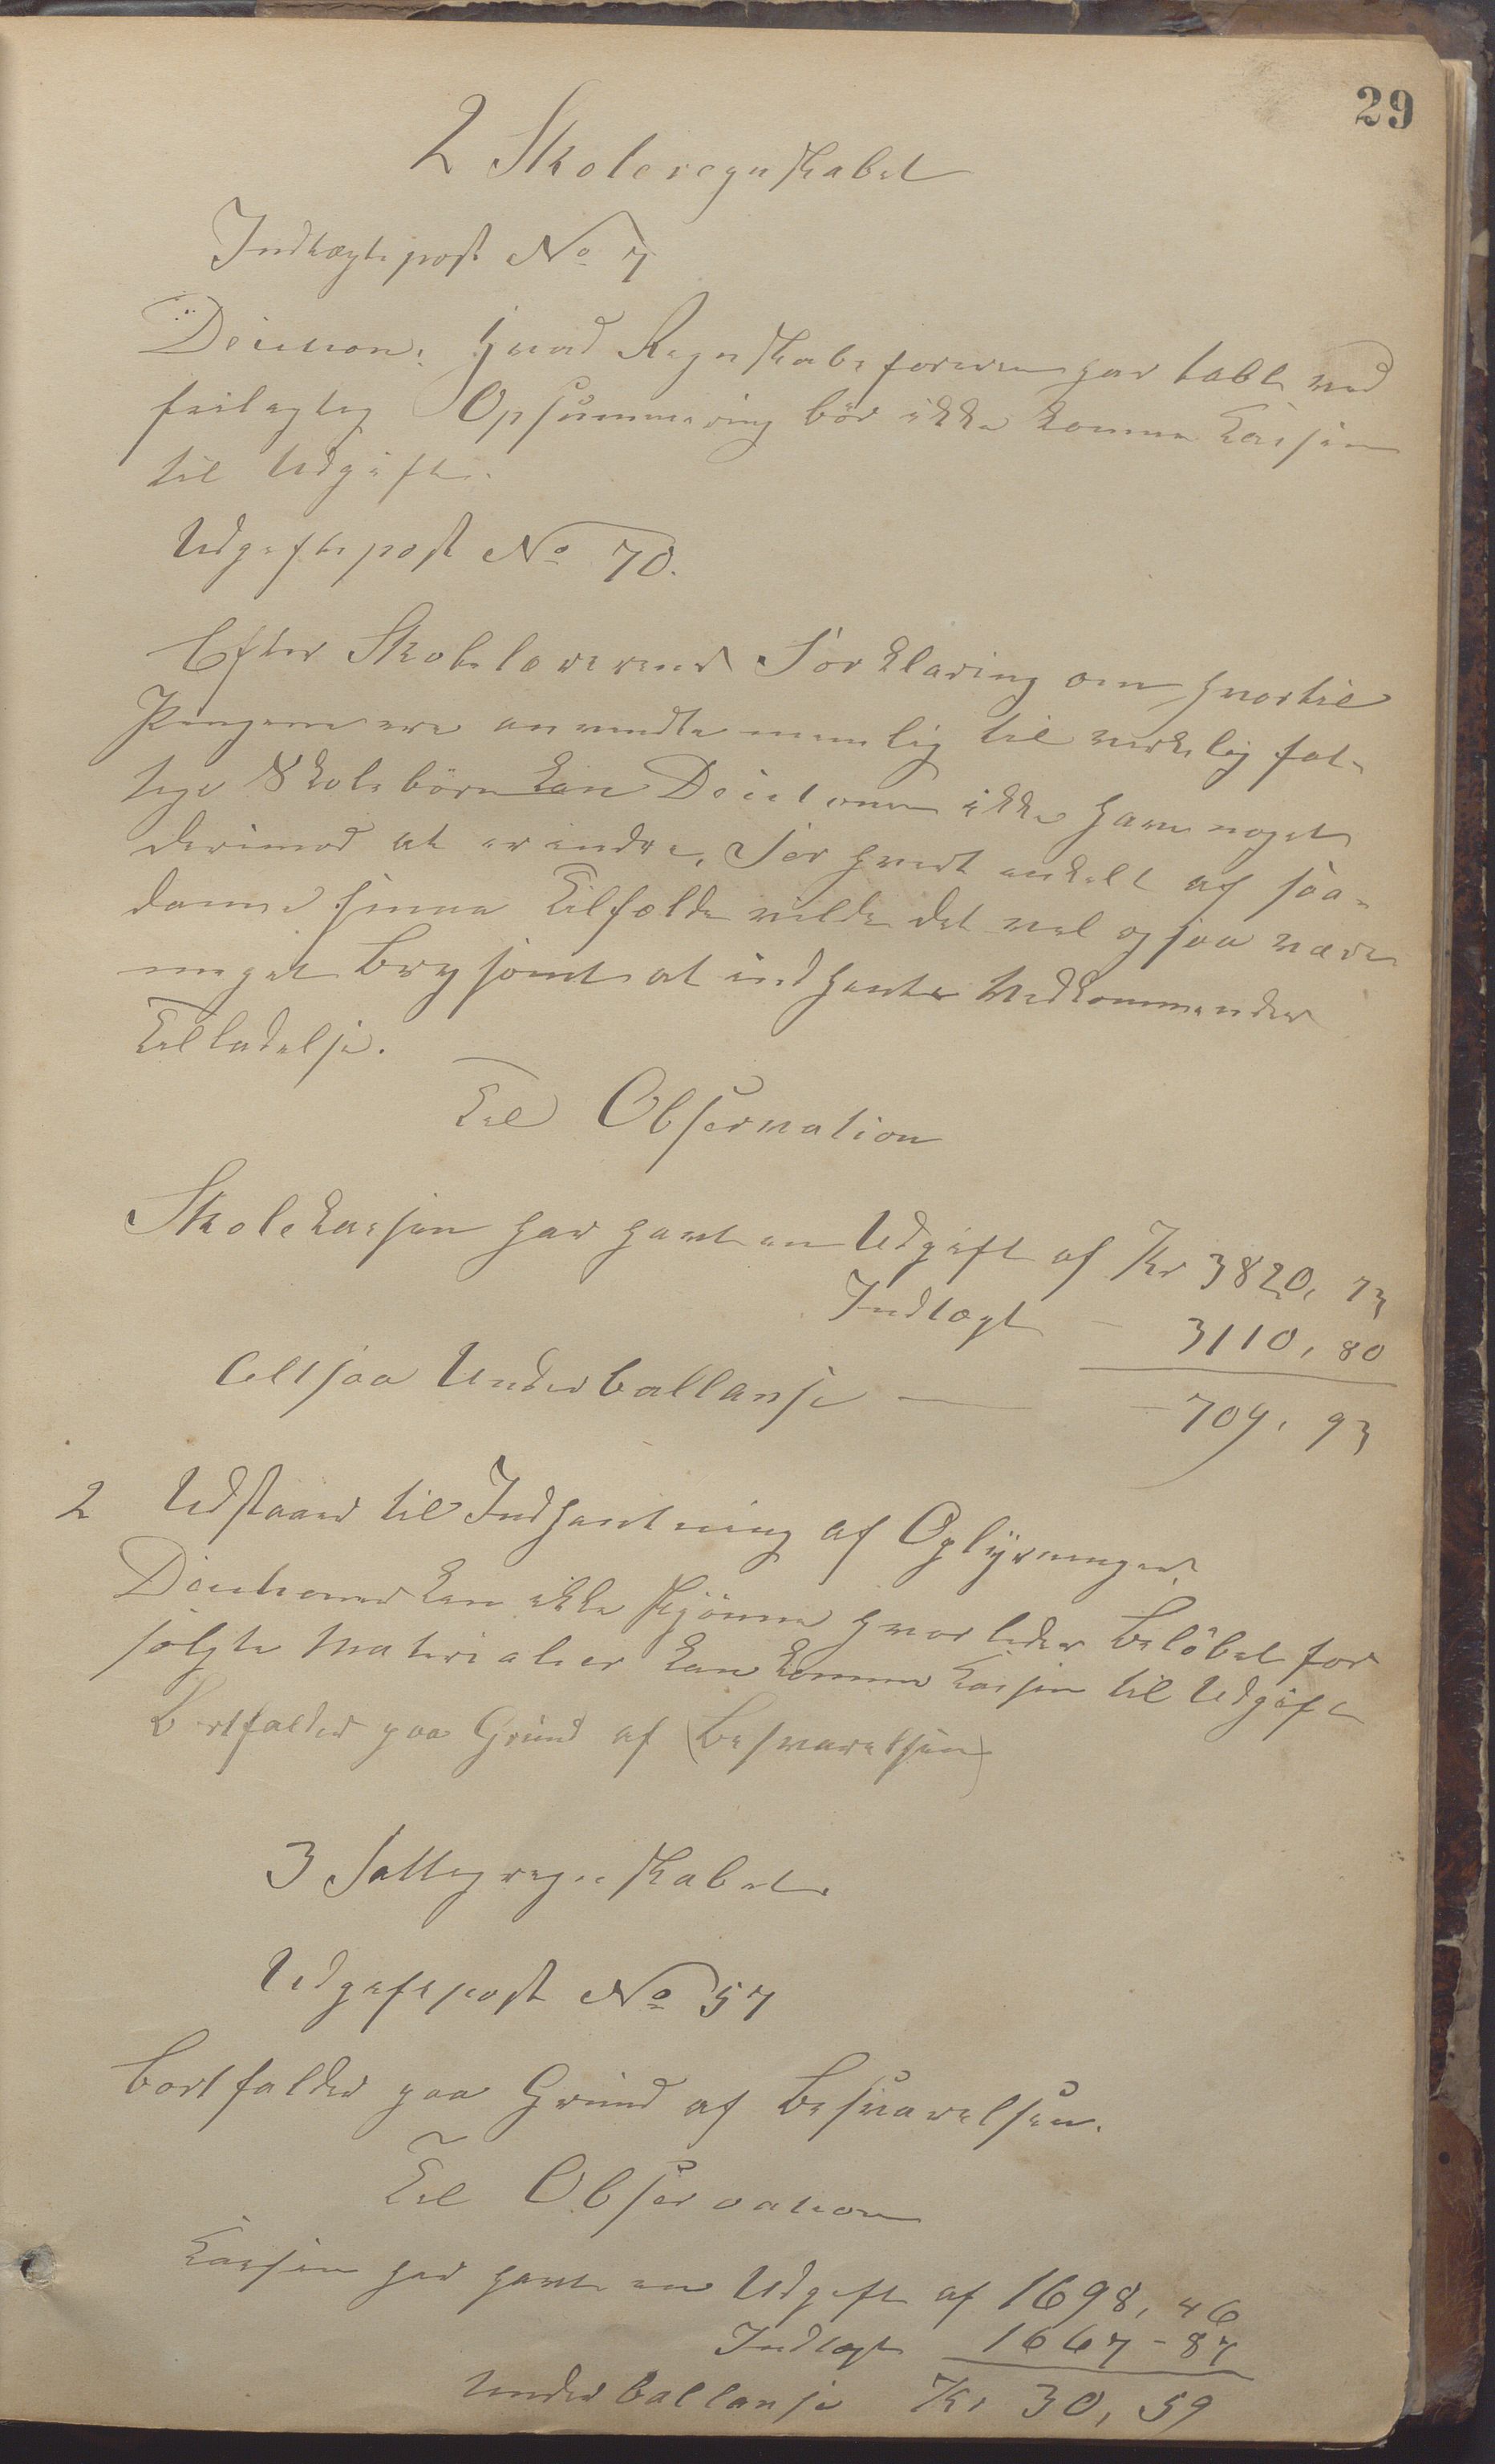 29
2 Skoleregnskabet
Indtægtspost No 7
Decision: Hvad Regnskabsføreren har tabt ved
feilagtig Opsummering bör ikke komme Kassen
til Udgift.
Udgiftspost No 70.
Efter Skolelærerens Forklaring om hvortil
Pengene ere anvendte nemlig til virkelig fat-
tige Skolebörn kan Decisionen ikke have noget
derimod at erindre, For hvert enkelt af saa-
danne smaa Tilfælde vilde det vel ogsaa være
meget brysomt at indhente Vedkommendes
Tilladelse.
Til Observation
Skolekassen har havt en Udgift af Kr 3820, 73
Indtægt - 3110, 80
Altsaa Underballanse - 709, 93
2 Udstaaer til Indhentning af Oplysninger.
Decisionen kan ikke skjönne hvorledes Belöbet for
solgte Materialier kan komme Kassen til Udgift
Bortfalder paa Grund af (Besvarelsen)
3 Fattigregnskabet.
Udgiftspost No 57
Bortfalder paa Grund af Besvarelsen.
Til Observation
Kassen har havt en Udgift af 1698, 46
Indtægt 1667 - 87
Underballanse Kr 30, 59